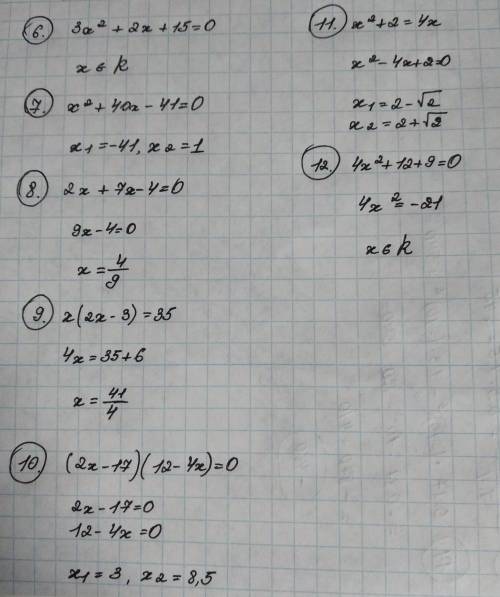 6. 3x² + 2x + 15 = 0
x ∈ k
7. x² + 40x - 41 = 0
x1 = -41, x2 = 1
8. 2x + 7x - 4 = 0
9x - 4 = 0
x = 4/9
9. x(2x - 3) = 35
4x = 35 + 6
x = 41/4
10. (2x - 17)(12 - 4x) = 0
2x - 17 = 0
12 - 4x = 0
x1 = 3, x2 = 8,5
11. x² + 2 = 4x
x² - 4x + 2 = 0
x1 = 2 - √2
x2 = 2 + √2
12. 4x² + 12 + 9 = 0
4x² = -21
x ∈ k